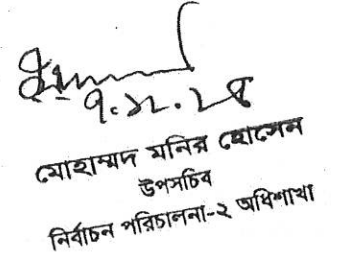 ৭.১২.২৪
মোহাম্মদ মনির হোসেন
উপসচিব
নির্বাচন পরিচালনা-২ অধিশাখা